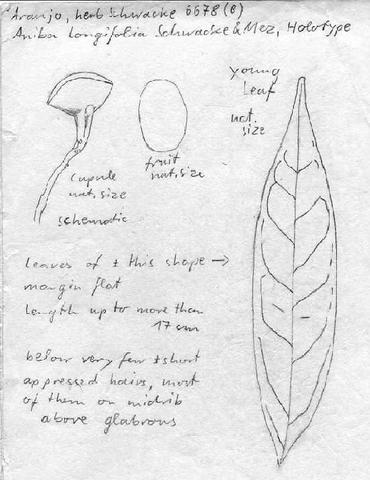 Araujo, herb Schwacke 6678 (B)
Aniba longifolia Schwacke & Mez, Holotype
young
leaf
nat.
size
fruit
nat. size
cupule
nat. size
schematic
leaves of ± this shape →
margin flat
length up to more than
17 cm
below very few ± short
appressed hairs, most
of them on midrib
above glabrous